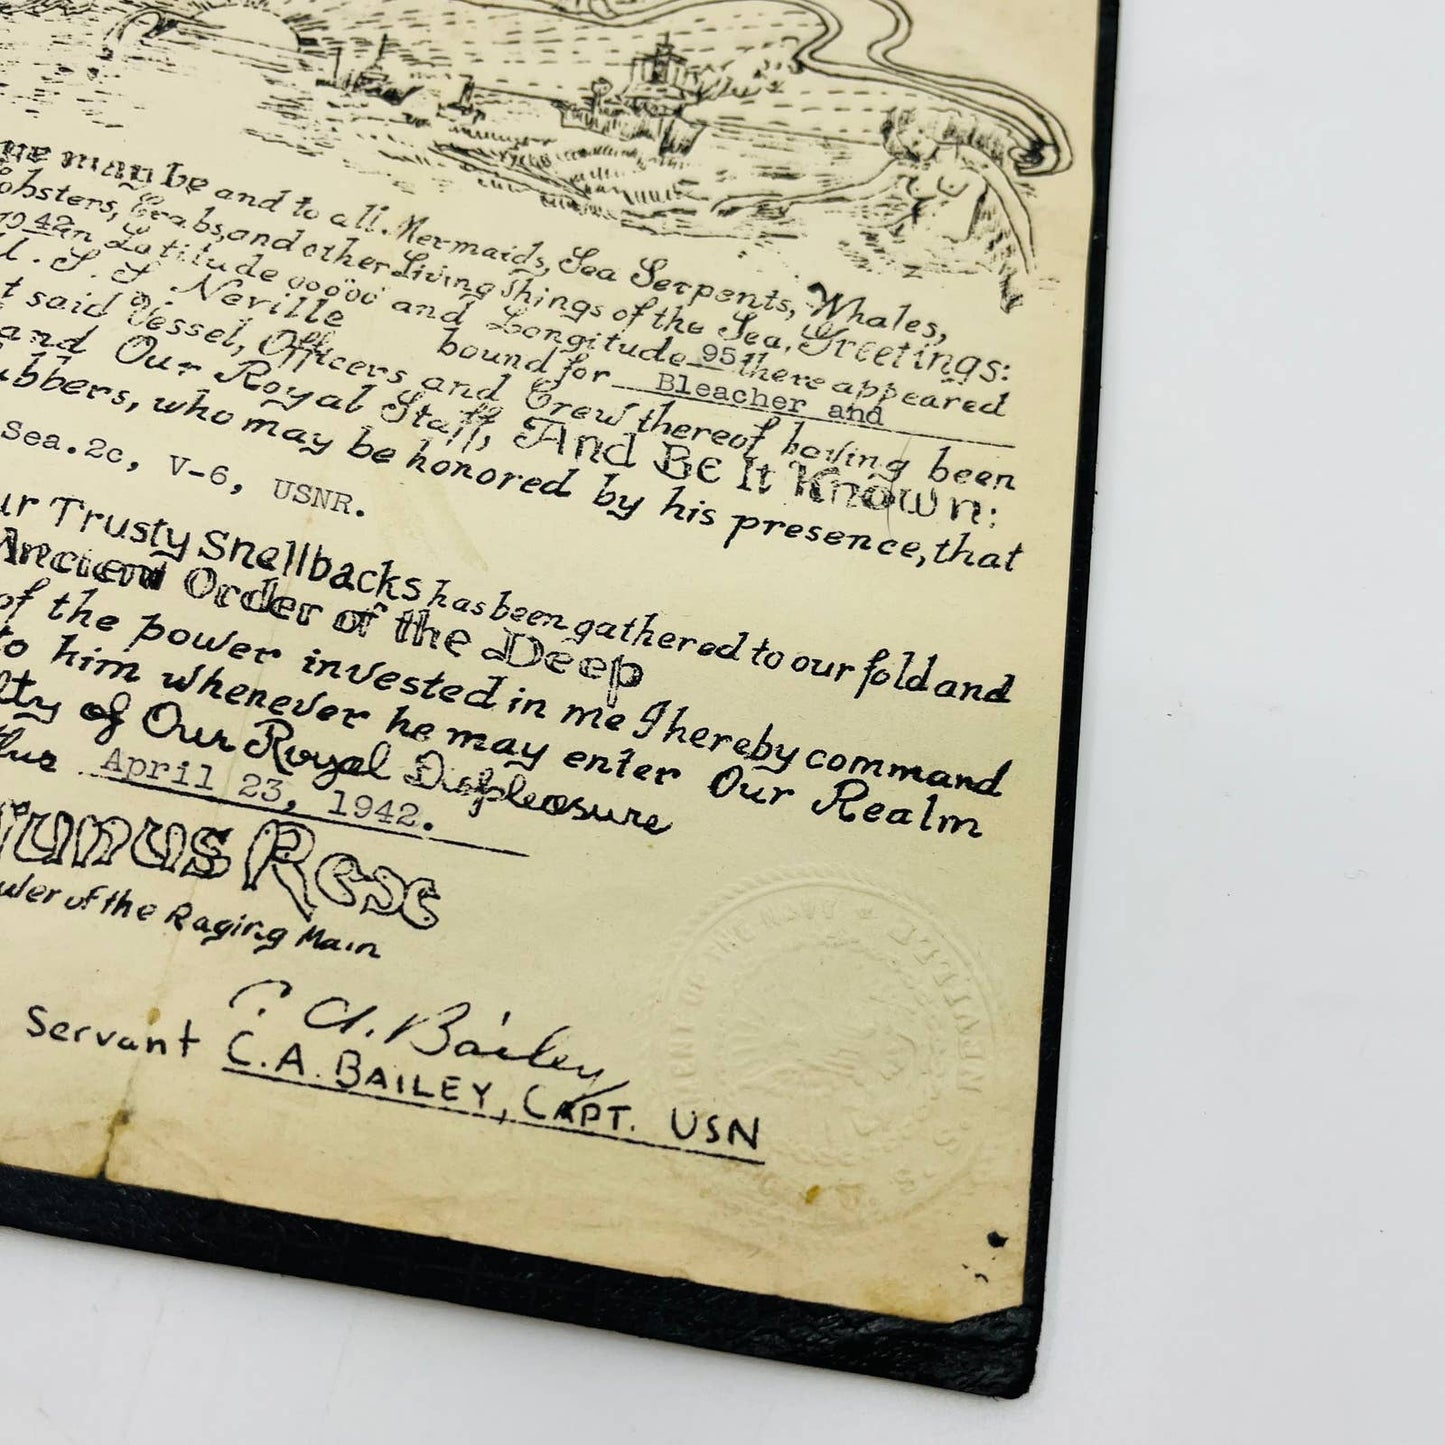 may be and to all Mermaids, Sea Serpents, Whales,
Lobsters, Crabs, and other Living Things of the Sea, Greetings:
1942 in Latitude 00°00' and Longitude 95 there appeared
U.S.S. Neville bound for Bleacher and
said Vessel, Officers and Crew thereof having been
and Our Royal Staff, And Be It Known:
who may be honored by his presence, that
Sea.2c, V-6, USNR.
Trusty Shellbacks has been gathered to our fold and
Ancient Order of the Deep
of the power invested in me I hereby command
to him whenever he may enter Our Realm
of Our Royal Displeasure
April 23, 1942.
Rex
of the Raging Main
C.A. Bailey
Servant C.A. BAILEY, CAPT. USN
OF THE NAVY
U.S.S. NEVILLE